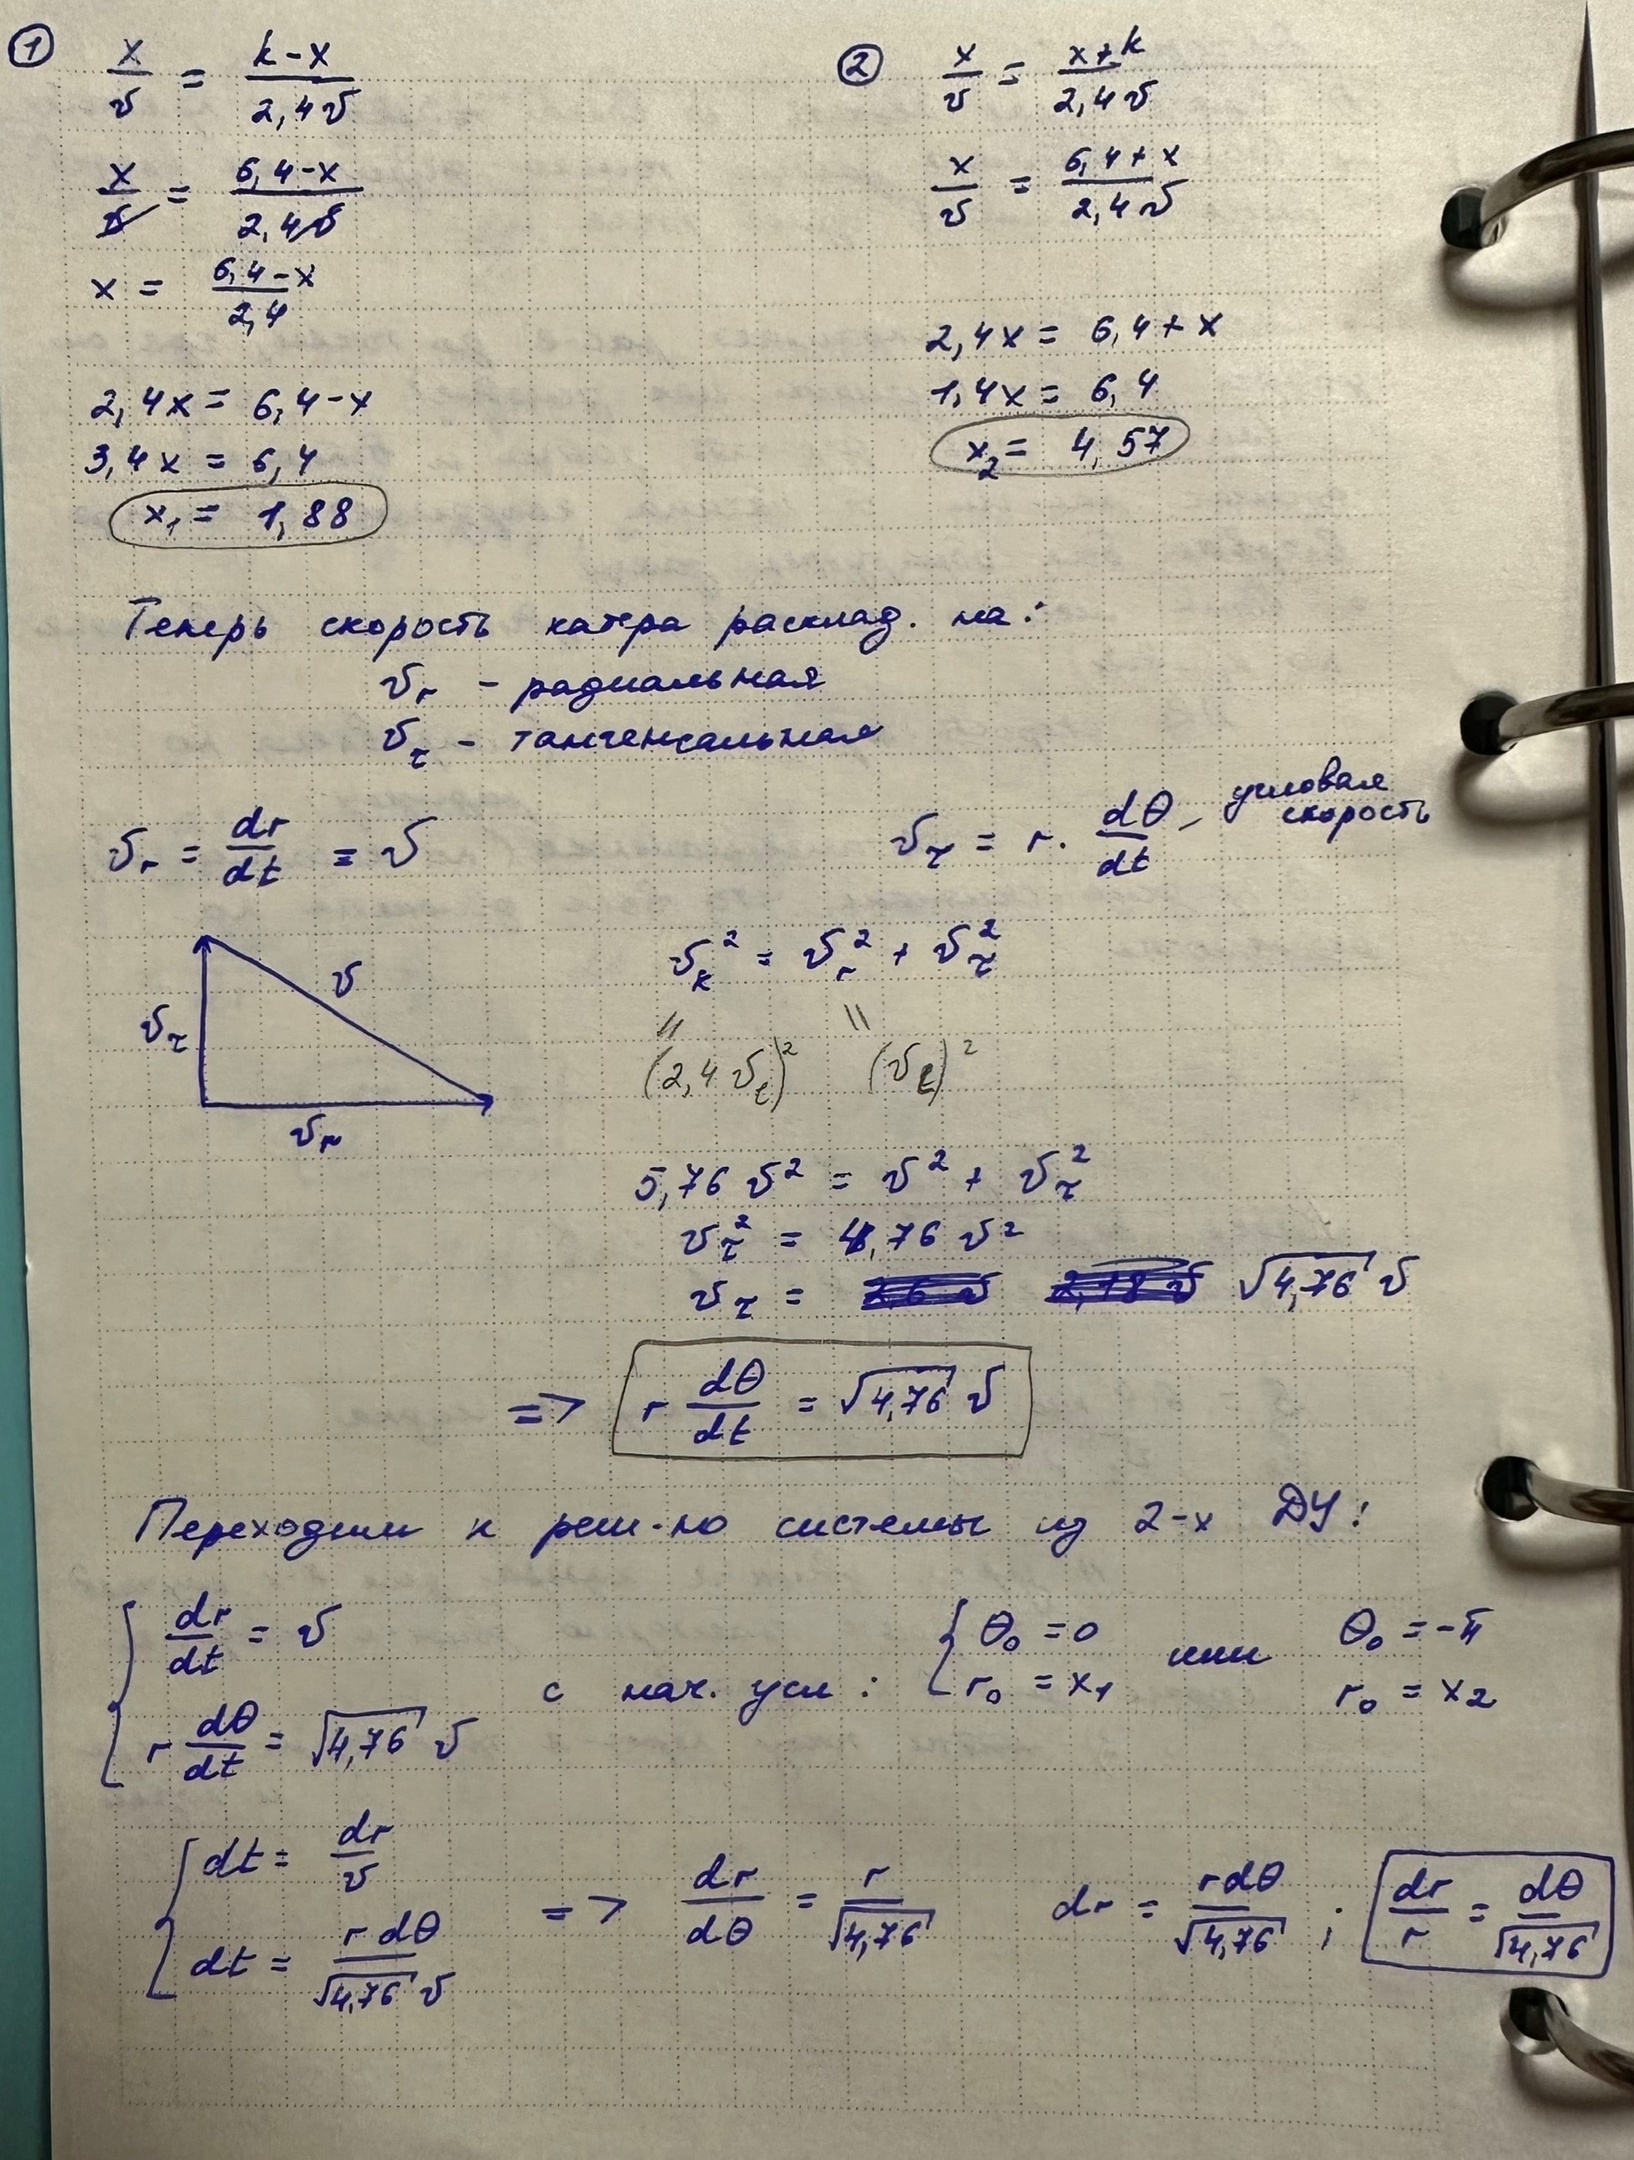 ① x/v = (k-x)/(2,4v)
x/v = (6,4-x)/(2,4v)
x = (6,4-x)/2,4
2,4x = 6,4-x
3,4x = 6,4
x₁ = 1,88
② x/v = (x+k)/(2,4v)
x/v = (6,4+x)/(2,4v)
2,4x = 6,4+x
1,4x = 6,4
x₂ = 4,57
Теперь скорость катера расклад. на:
v_r - радиальная
v_τ - тангенсальная
v_r = dr/dt = v
v_τ = r · dθ/dt - угловая скорость
v_τ v v_r
v_k² = v_r² + v_τ²
" "
(2,4 v_t)² (v_t)²
5,76 v² = v² + v_τ²
v_τ² = 4,76 v²
v_τ = √4,76 v
=> r dθ/dt = √4,76 v
Переходим к реш-ю системы из 2-х ДУ:
{ dr/dt = v
r dθ/dt = √4,76 v
с нач. усл: { θ₀ = 0
r₀ = x₁
или θ₀ = -π
r₀ = x₂
{ dt = dr/v
dt = r dθ/(√4,76 v)
=> dr/dθ = r/√4,76 dr = rdθ/√4,76 ; dr/r = dθ/√4,76